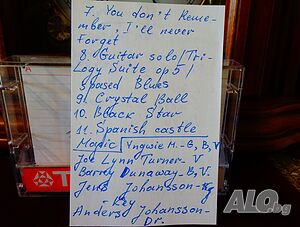 7. You don't Reme-
mber, I'll never
forget
8. Guitar solo/Tri-
logy Suite op 5/
Spased Blues
9. Crystal Ball
10. Black Star
11. Spanish castle
Magic Yngwie M. - G, B, V
Joe Lynn Turner - V
Barry Dunaway - B, V.
Jens Johansson -
- Key
Anders Johansson -
Dr.
A
ALO.bg